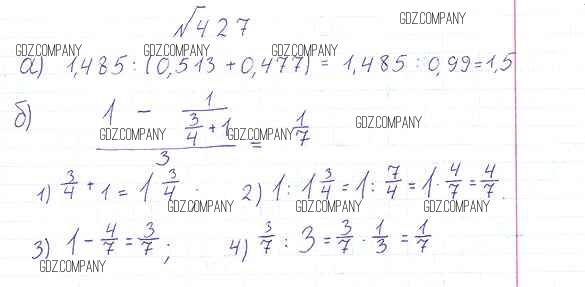 №427 GDZ.COMPANY
GDZ.COMPANY GDZ.COMPANY GDZ.COMPANY
а) 1,485 : (0,513 + 0,477) = 1,485 : 0,99 = 1,5
б) (1 - 1/(3/4 + 1))/3 = 1/7
GDZ.COMPANY GDZ.COMPANY GDZ.COMPANY
1) 3/4 + 1 = 1 3/4. 2) 1 : 1 3/4 = 1 : 7/4 = 1 · 4/7 = 4/7.
GDZ.COMPANY GDZ.COMPANY GDZ.COMPANY
3) 1 - 4/7 = 3/7; 4) 3/7 : 3 = 3/7 · 1/3 = 1/7
GDZ.COMPANY